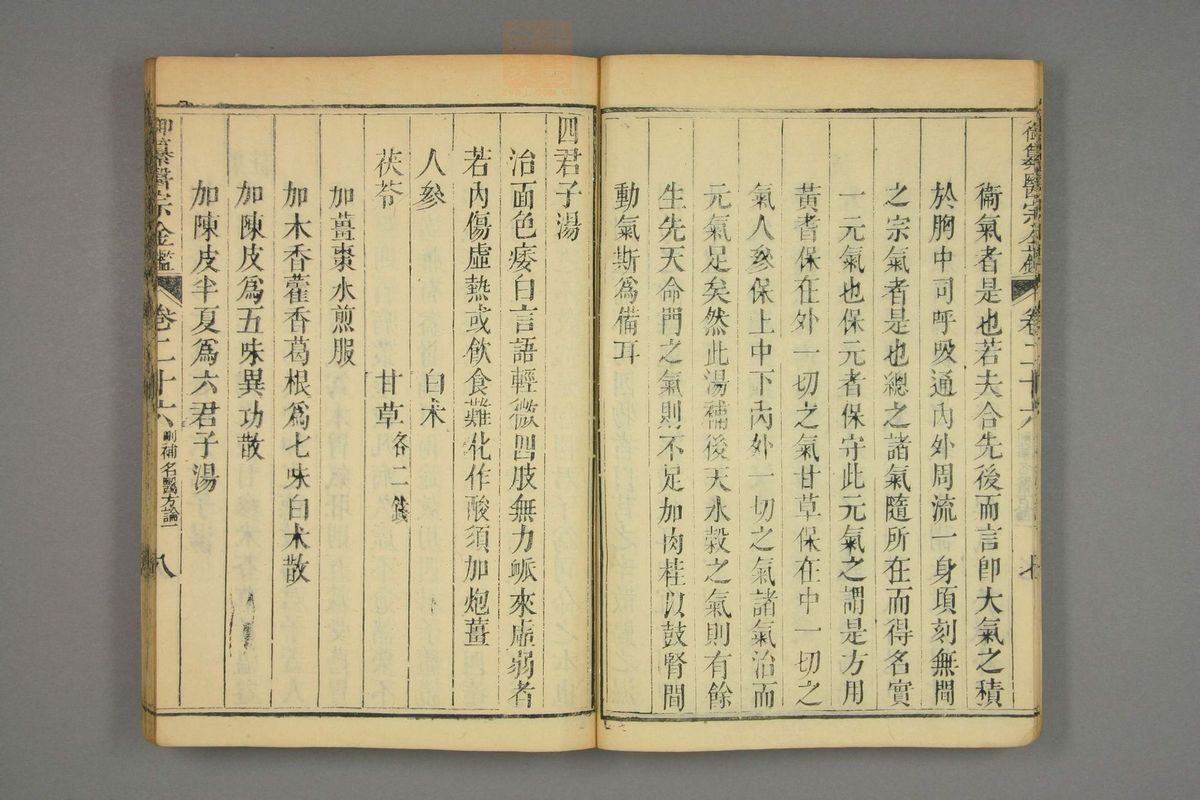 御纂醫宗金鑑 卷二十六 七
衞氣者是也若夫合先後而言卽大氣之積
於胸中司呼吸通內外周流一身頃刻無間
之宗氣者是也總之諸氣隨所在而得名實
一元氣也保元者保守此元氣之謂是方用
黃耆保在外一切之氣甘草保在中一切之
氣人參保上中下內外一切之氣諸氣治而
元氣足矣然此湯補後天水穀之氣則有餘
生先天命門之氣則不足加肉桂以鼓腎間
動氣斯爲備耳
四君子湯
治面色痿白言語輕微四肢無力脈來虛弱者
若內傷虛熱或飲食難化作酸須加炮薑
人參 白朮
茯苓 甘草各二錢
加薑棗水煎服
加木香藿香葛根爲七味白朮散
加陳皮爲五味異功散
加陳皮半夏爲六君子湯
御纂醫宗金鑑 卷二十六 刪補名醫方論一 八